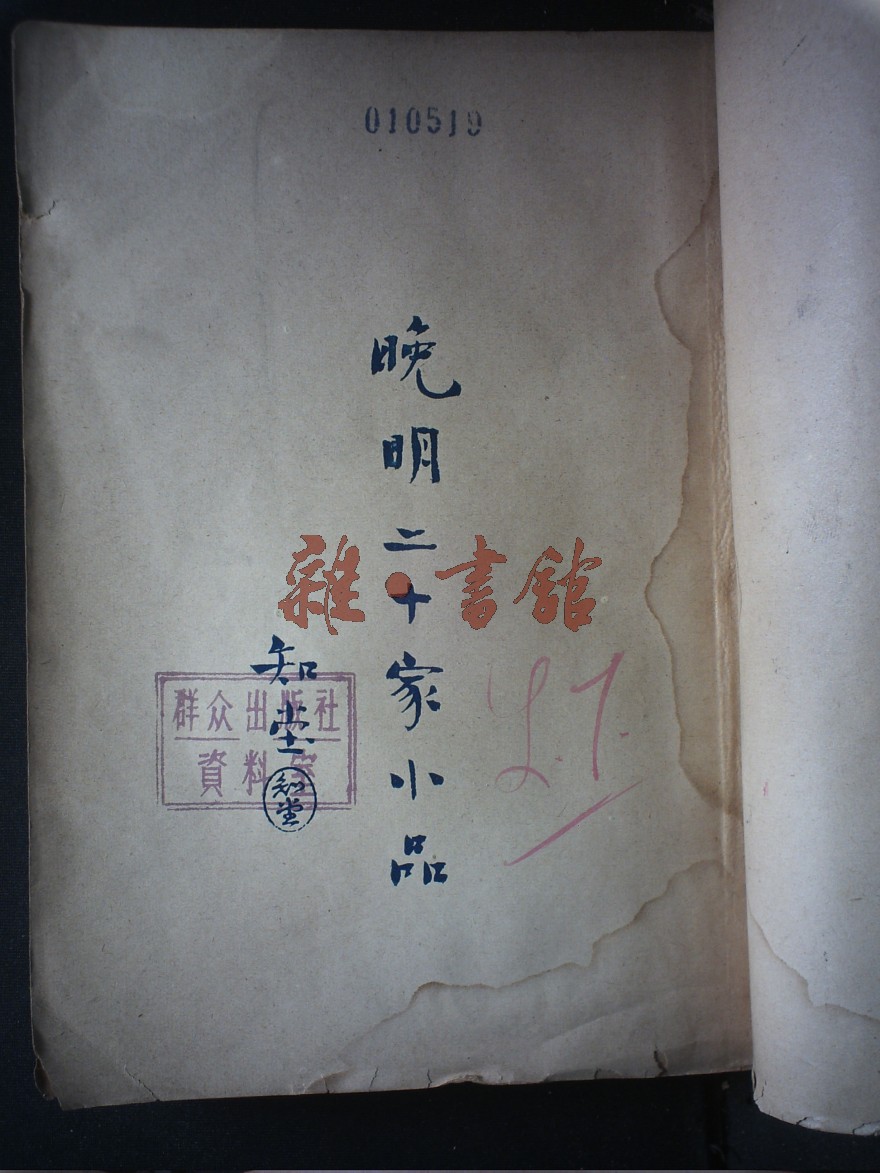 010519
晚明二十家小品
知堂
知堂
雜·書館
群众出版社
資料室